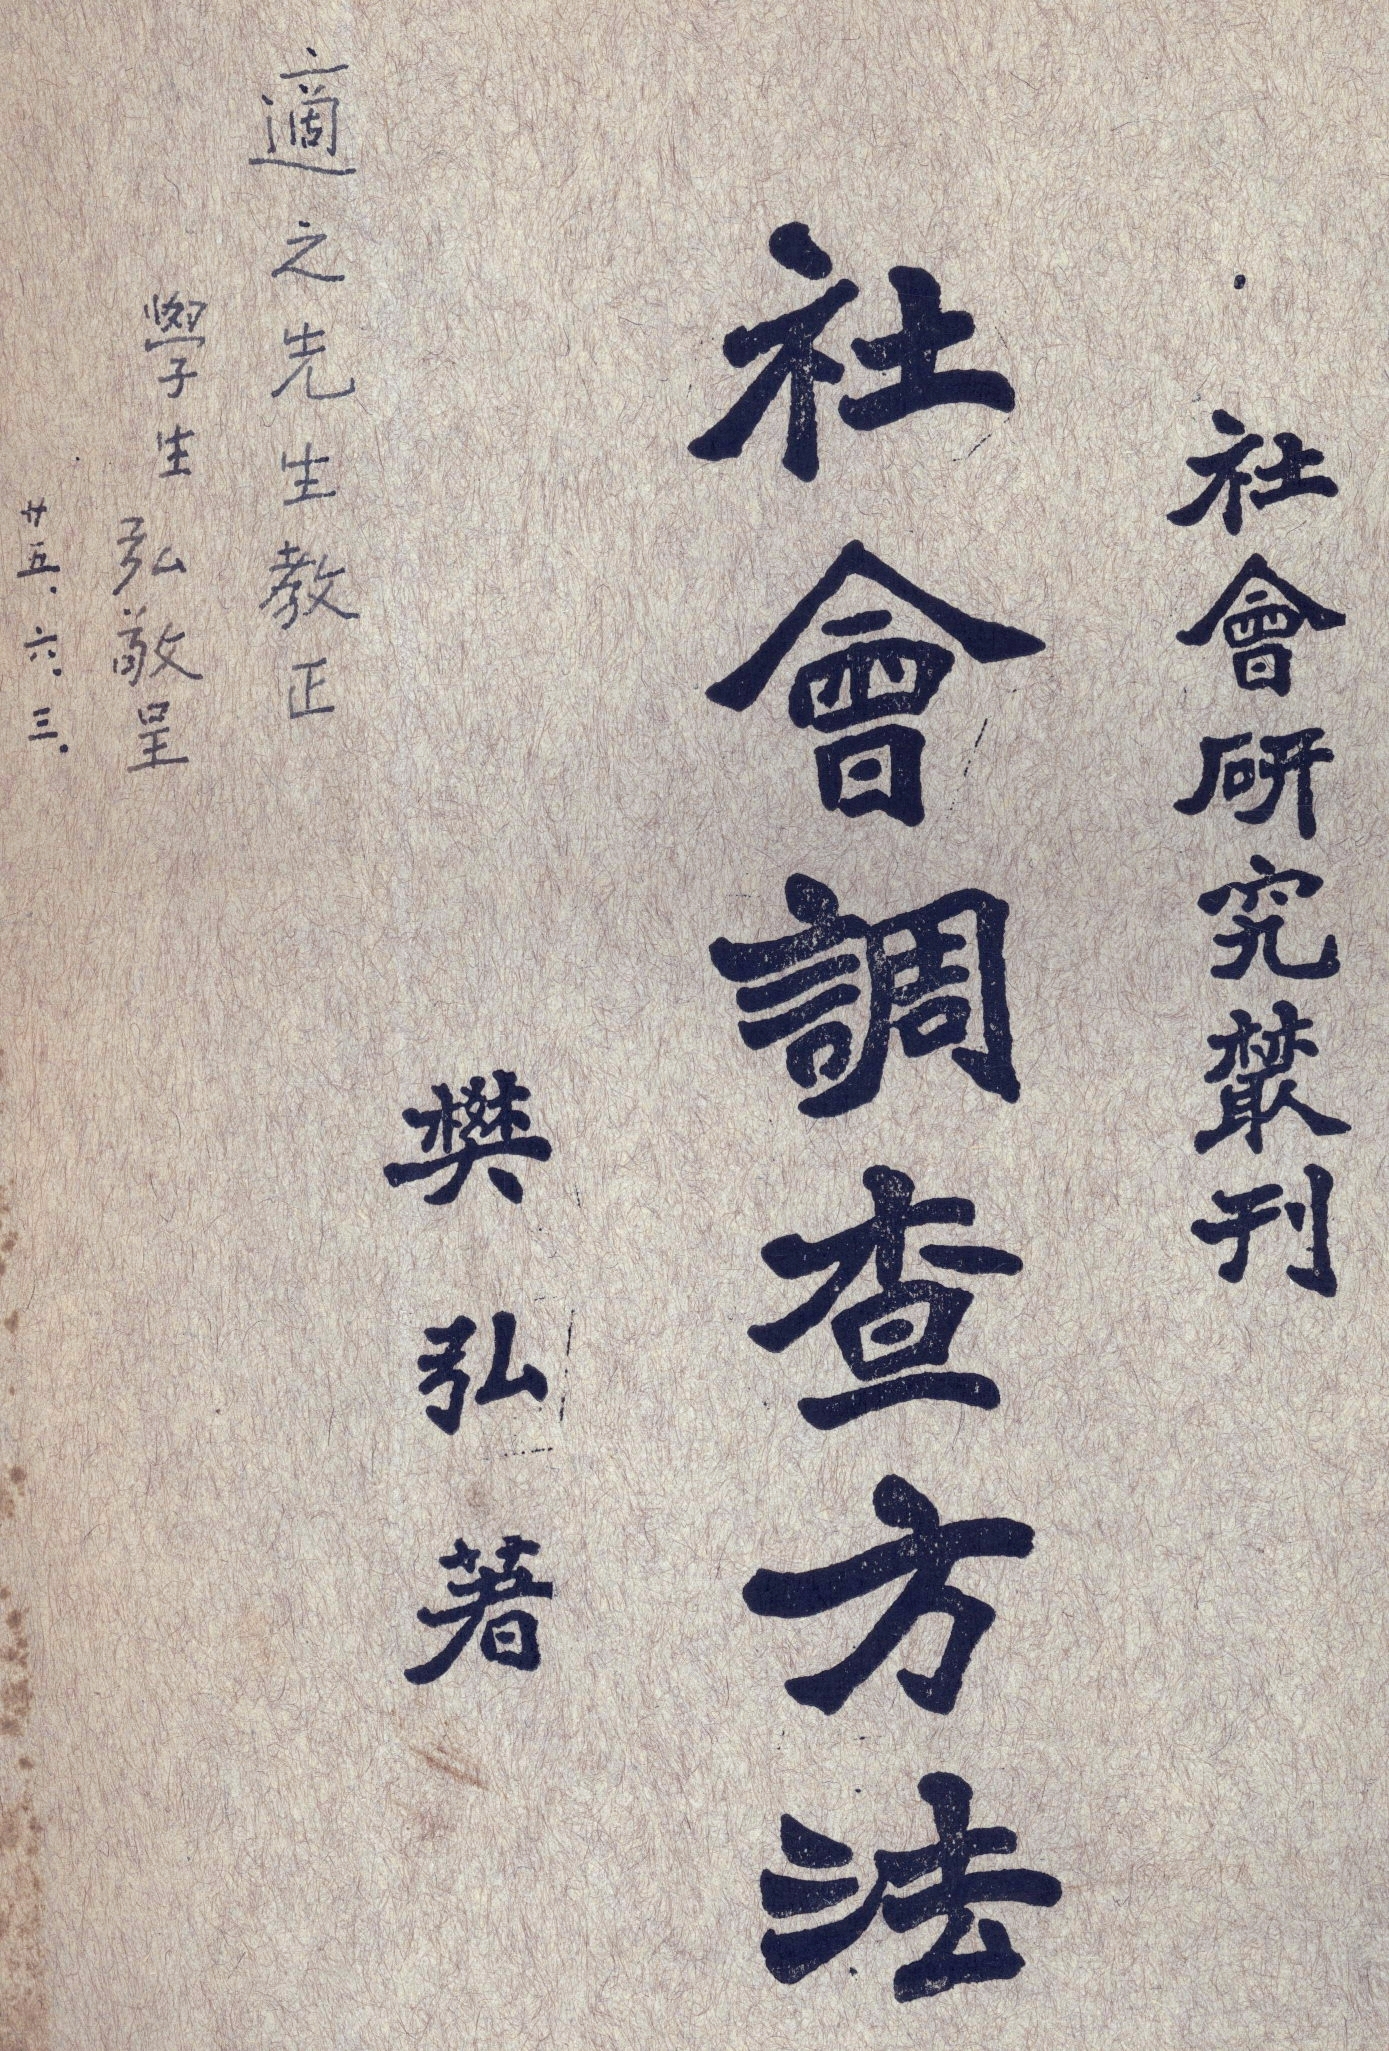 社會研究叢刊
社會調查方法
樊弘著
適之先生教正
學生弘敬呈
廿五.六.三.